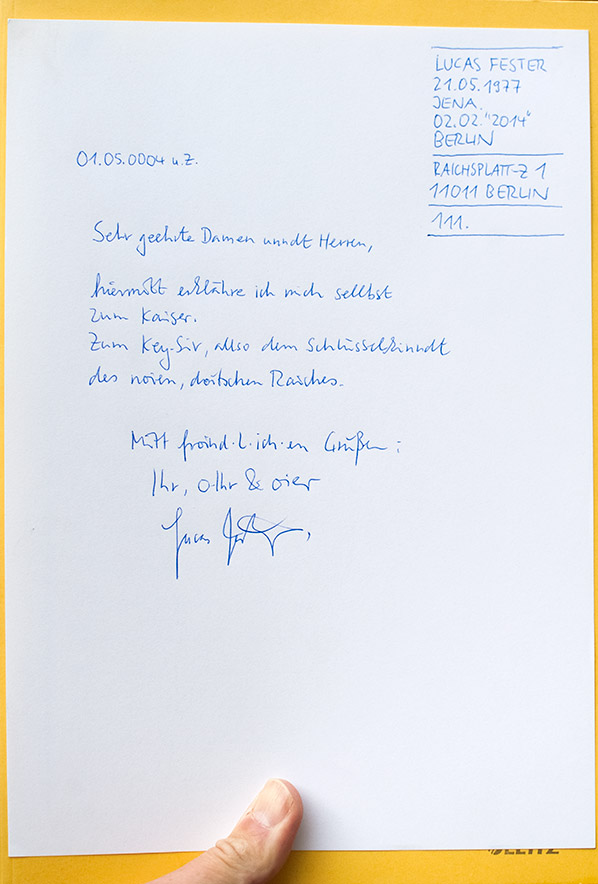 LUCAS FESTER
21.05.1977
JENA.
02.02."2014"
BERLIN
RAICHSPLATT-Z 1
11011 BERLIN
111.
01.05.0004 u.Z.
Sehr geehrte Damen unndt Herren,
hiermitt erklähre ich mich sellbst
zum Kaiser.
Zum Key-Sir, allso dem Schlüsselkinndt
des noien, doitschen Raiches.
Mitt froind·l·ich·en Grüßen:
Ihr, o-Ihr & oier
Lucas Fester
LEITZ